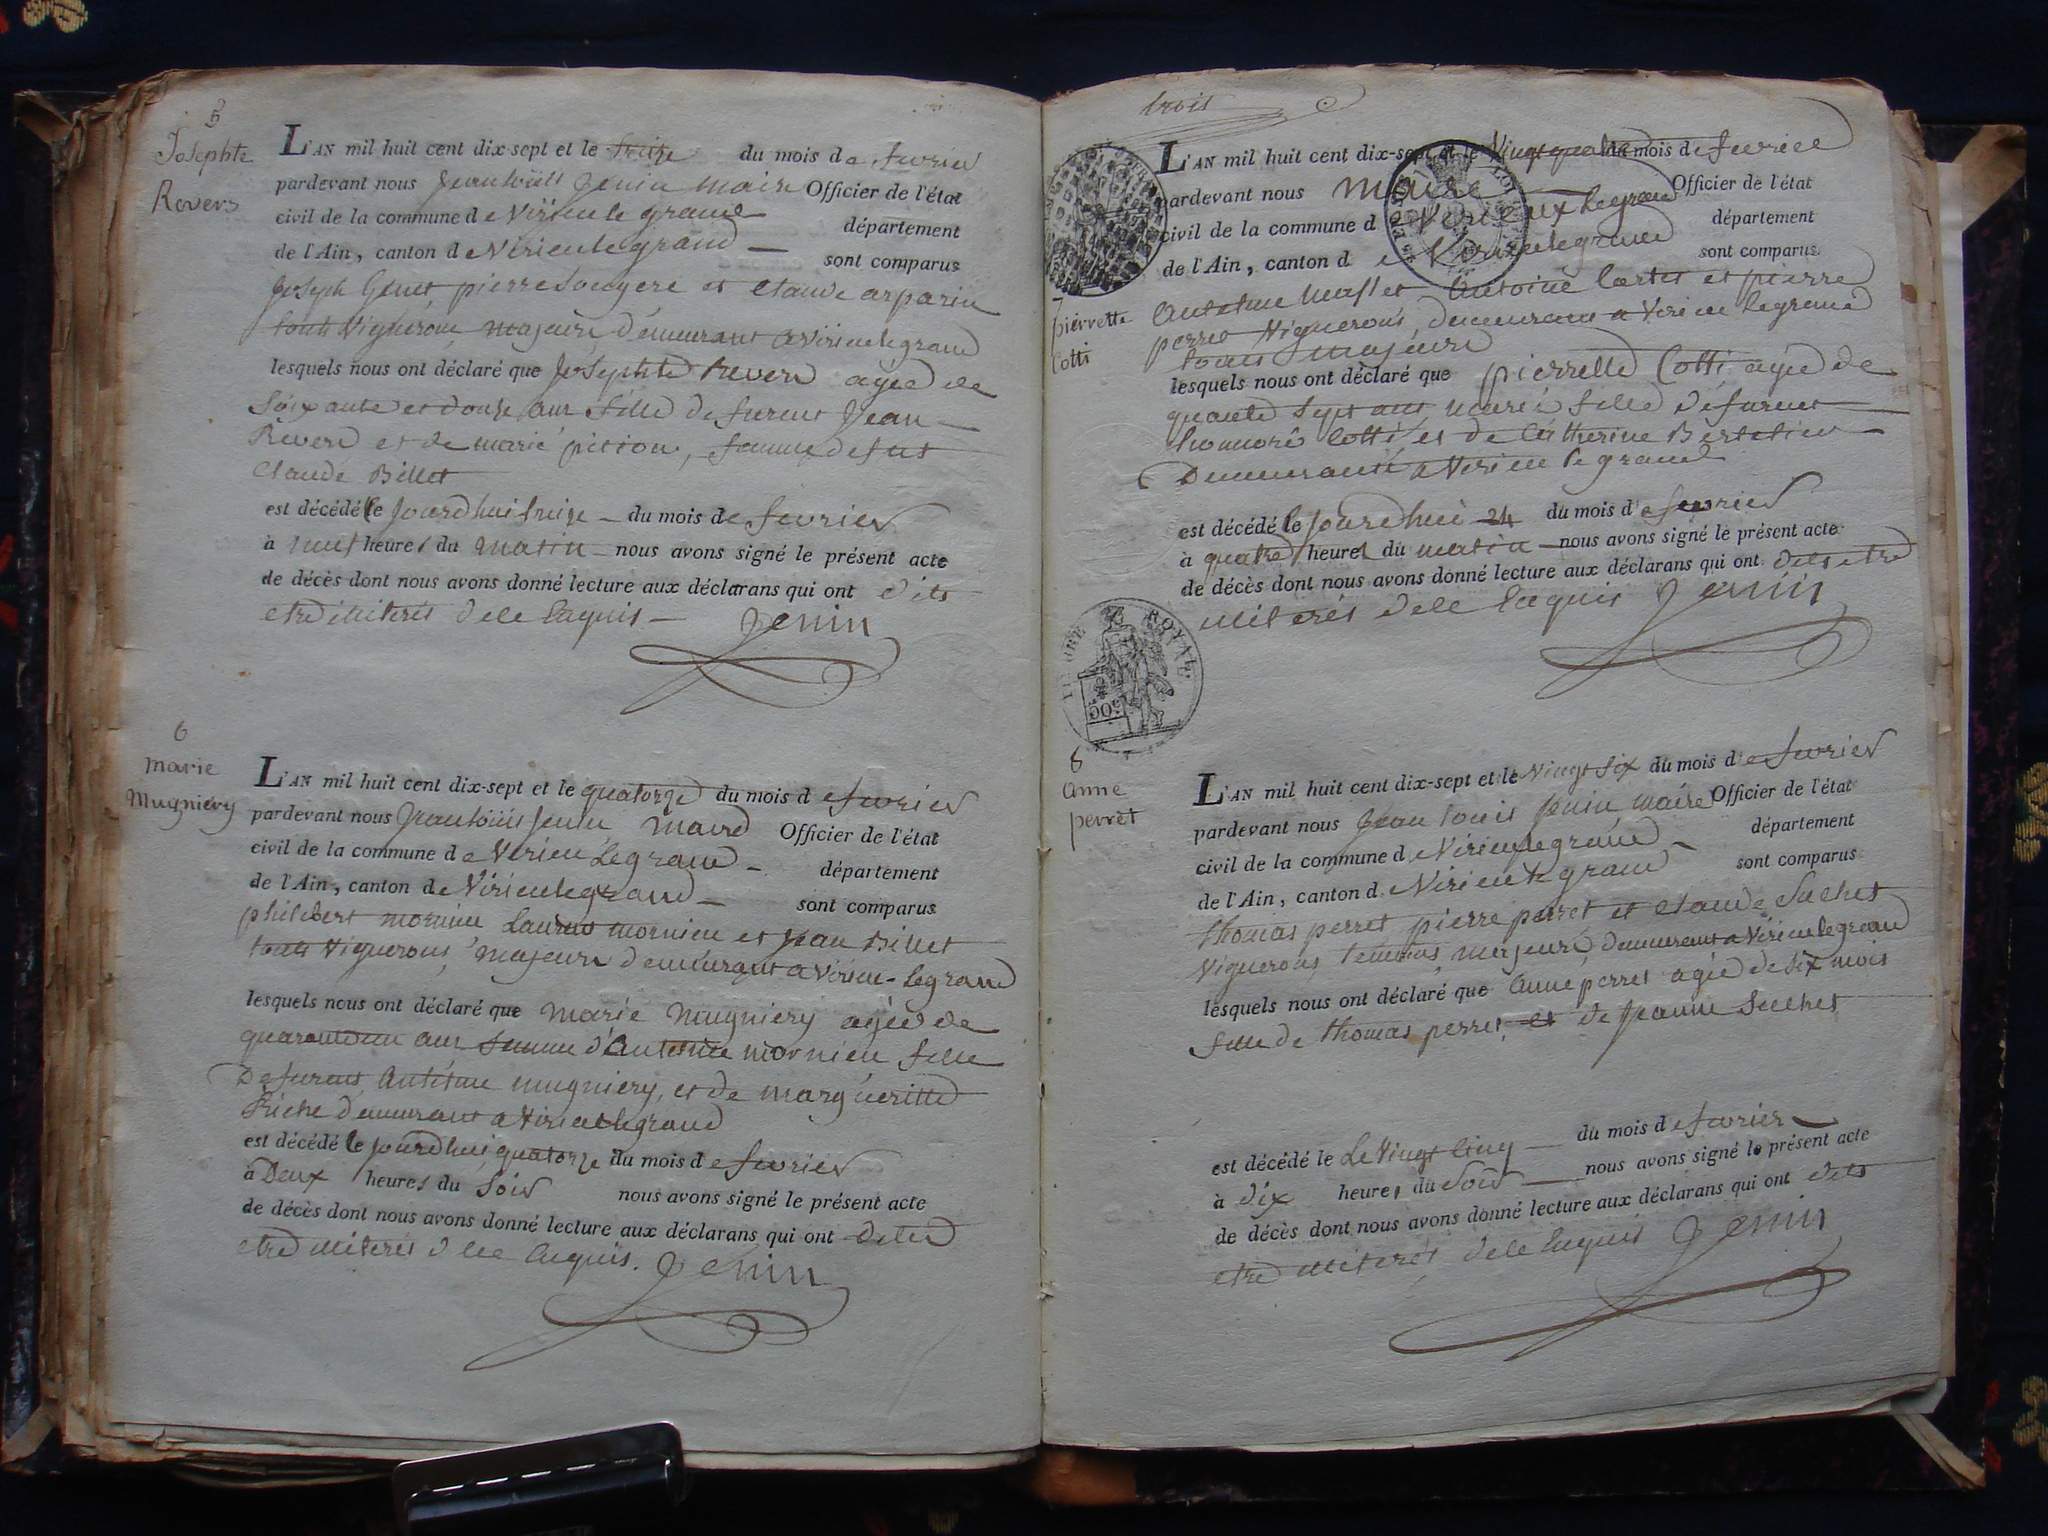 5
Josephte
Revers
L'AN mil huit cent dix-sept et le treize du mois de fevrier
pardevant nous Jean louis Jenin maire Officier de l'état
civil de la commune de Virieu le grand département
de l'Ain, canton de Virieu le grand sont comparus
Joseph Genet, pierre et Claude arparin
touts Vignerons, majeurs demeurant a virieu le grand
lesquels nous ont déclaré que Josephte Revers agée de
Soixante et douze ans fille de furent Jean
Revers et de marie pition, femme de fut
Claude Billet
est décédé le jourdhui treize du mois de fevrier
à neuf heures du matin nous avons signé le présent acte
de décès dont nous avons donné lecture aux déclarans qui ont dits
etre illiterés de le enquis Jenin
6
marie
Mugniery
L'AN mil huit cent dix-sept et le quatorze du mois de fevrier
pardevant nous Jean louis Jenin maire Officier de l'état
civil de la commune de Virieu Le grand département
de l'Ain, canton de Virieu le grand sont comparus
philibert mornieu Laurent mornieu et Jean Billet
touts Vignerons, majeurs demeurant a virieu-Le grand
lesquels nous ont déclaré que marie mugniery agée de
ans femme d'Antoine mornieu fille
De furent Antoine mugniery, et de margueritte
demeurant a Virieu le grand
est décédé le jourdhui quatorze du mois de fevrier
à Deux heures du Soir nous avons signé le présent acte
de décès dont nous avons donné lecture aux déclarans qui ont
etre illiterés de le enquis. Jenin
trois
L'AN mil huit cent dix-sept et le Vingt quatre du mois de fevrier
pardevant nous maire Officier de l'état
civil de la commune de Virieux le grand département
de l'Ain, canton de Virieu le grand sont comparus
7
pierrette
Cotti
Antoine Antoine et pierre
perret Vignerons, demeurant a Virieu le grand
touts majeurs
lesquels nous ont déclaré que pierrette Cotti agée de
quarante Sept ans mariée fille de furent
honnoré Cotti, et de Catherine
Demeurante a Virieu le grand
est décédé le jourdhui 24 du mois de fevrier
à quatre heures du matin nous avons signé le présent acte
de décès dont nous avons donné lecture aux déclarans qui ont dits etre
illiterés de le enquis Jenin
TIMBRE ROYAL
8
anne
perret
L'AN mil huit cent dix-sept et le Vingt Six du mois de fevrier
pardevant nous Jean Louis Jenin, maire Officier de l'état
civil de la commune de Virieu le grand département
de l'Ain, canton de Virieu le grand sont comparus
thomas perret pierre perret et Claude Suchet
Vignerons, majeurs, demeurant a Virieu le grand
lesquels nous ont déclaré que Anne perret agée de Six mois
fille de thomas perret et de Jeanne Suchet
est décédé le Le Vingt Cinq du mois de fevrier
à dix heures du Soir nous avons signé le présent acte
de décès dont nous avons donné lecture aux déclarans qui ont dits
etre illiterés de le enquis Jenin